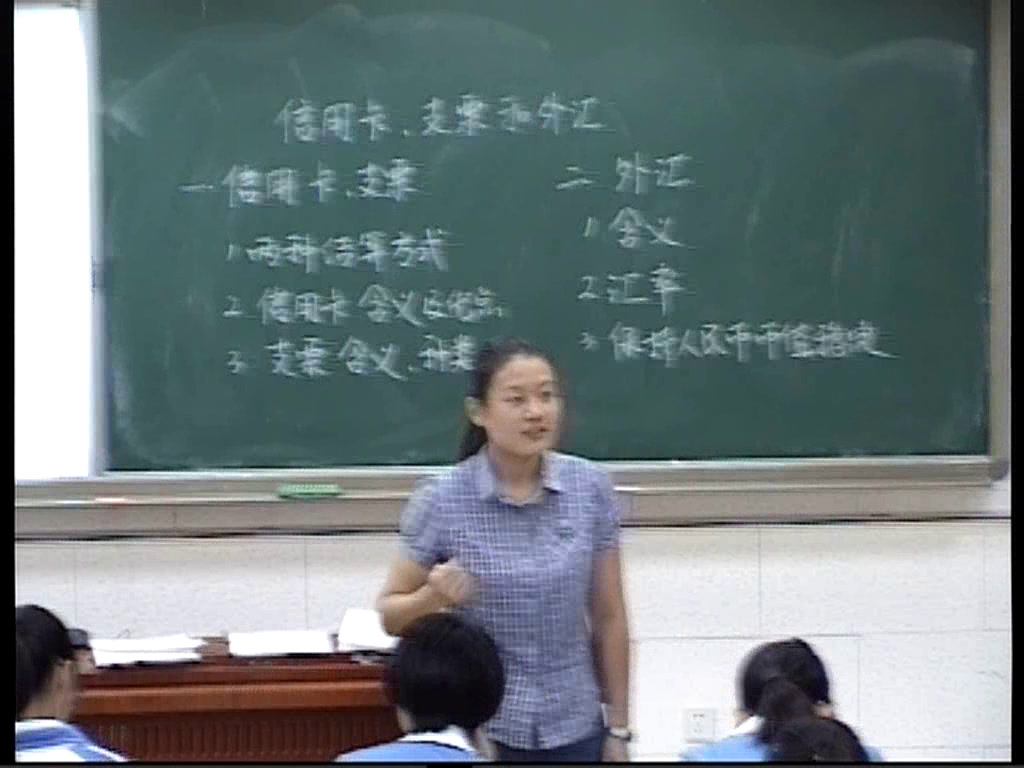 信用卡、支票和外汇
一 信用卡、支票
1. 两种结算方式
2. 信用卡 含义及优点
3. 支票 含义、种类
二 外汇
1 含义
2 汇率
3 保持人民币币值稳定